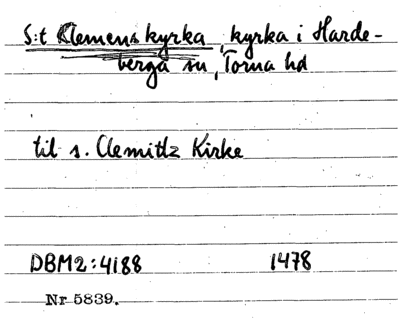 S:t Clemens kyrka, kyrka i Harde-
berga sn, Torna hd
til s. Clemitz Kirke
DBM2:4188 1478
Nr 5839.